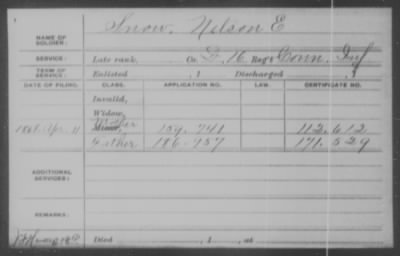 Snow, Nelson E
NAME OF SOLDIER:
SERVICE: Late rank, Co. D, 16 Reg't Conn. Inf.
TERM OF SERVICE: Enlisted , 1 Discharged , 1
DATE OF FILING. CLASS. APPLICATION NO. LAW. CERTIFICATE NO.
Invalid,
Widow,
Minor,
Mother 159.741 112.612
Father 186.957 171.529
ADDITIONAL SERVICES:
REMARKS:
Died , 1 , at